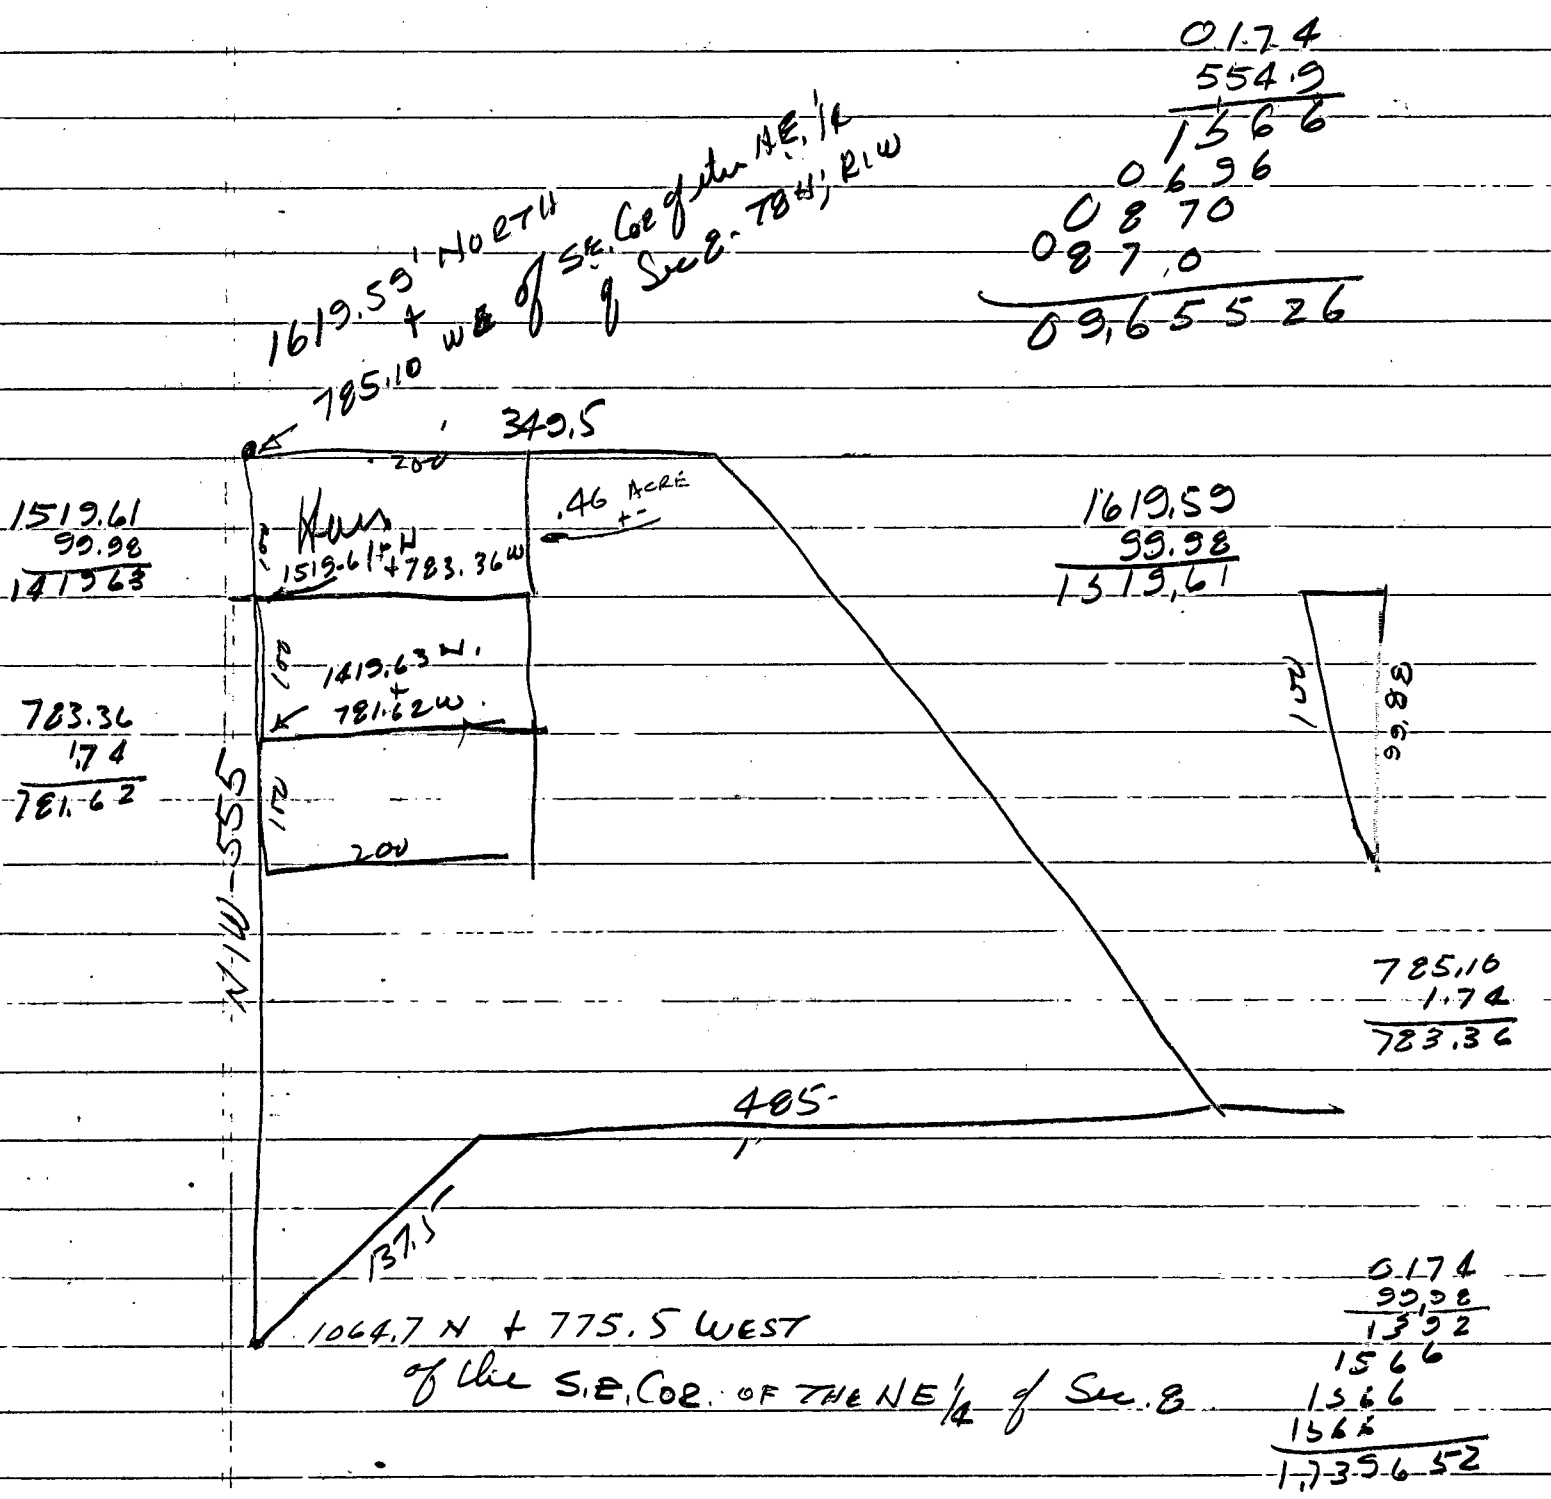 0174
554.9
1566
0696
0870
0870
09,65526
1619.59' NORTH
+
785.10 W of S.E. Cor of the N.E. 1/4
of Sec 8 - T8N; R1W
349.5
200
.46 ACRE
+-
1519.61
99.98
141963
1519.61 + N
+783.36 W
1619.59
99.98
1519,61
100
1419.63 N.
+
781.62 W.
100
783.36
1.74
781.62
100
200
N-1W-555
785,10
1.74
783.36
485-
1"
137.5
1064.7 N + 775.5 WEST
of the S.E. COR. OF THE NE 1/4 of Sec. 8
0174
99,98
1392
1566
1566
1566
1,739652